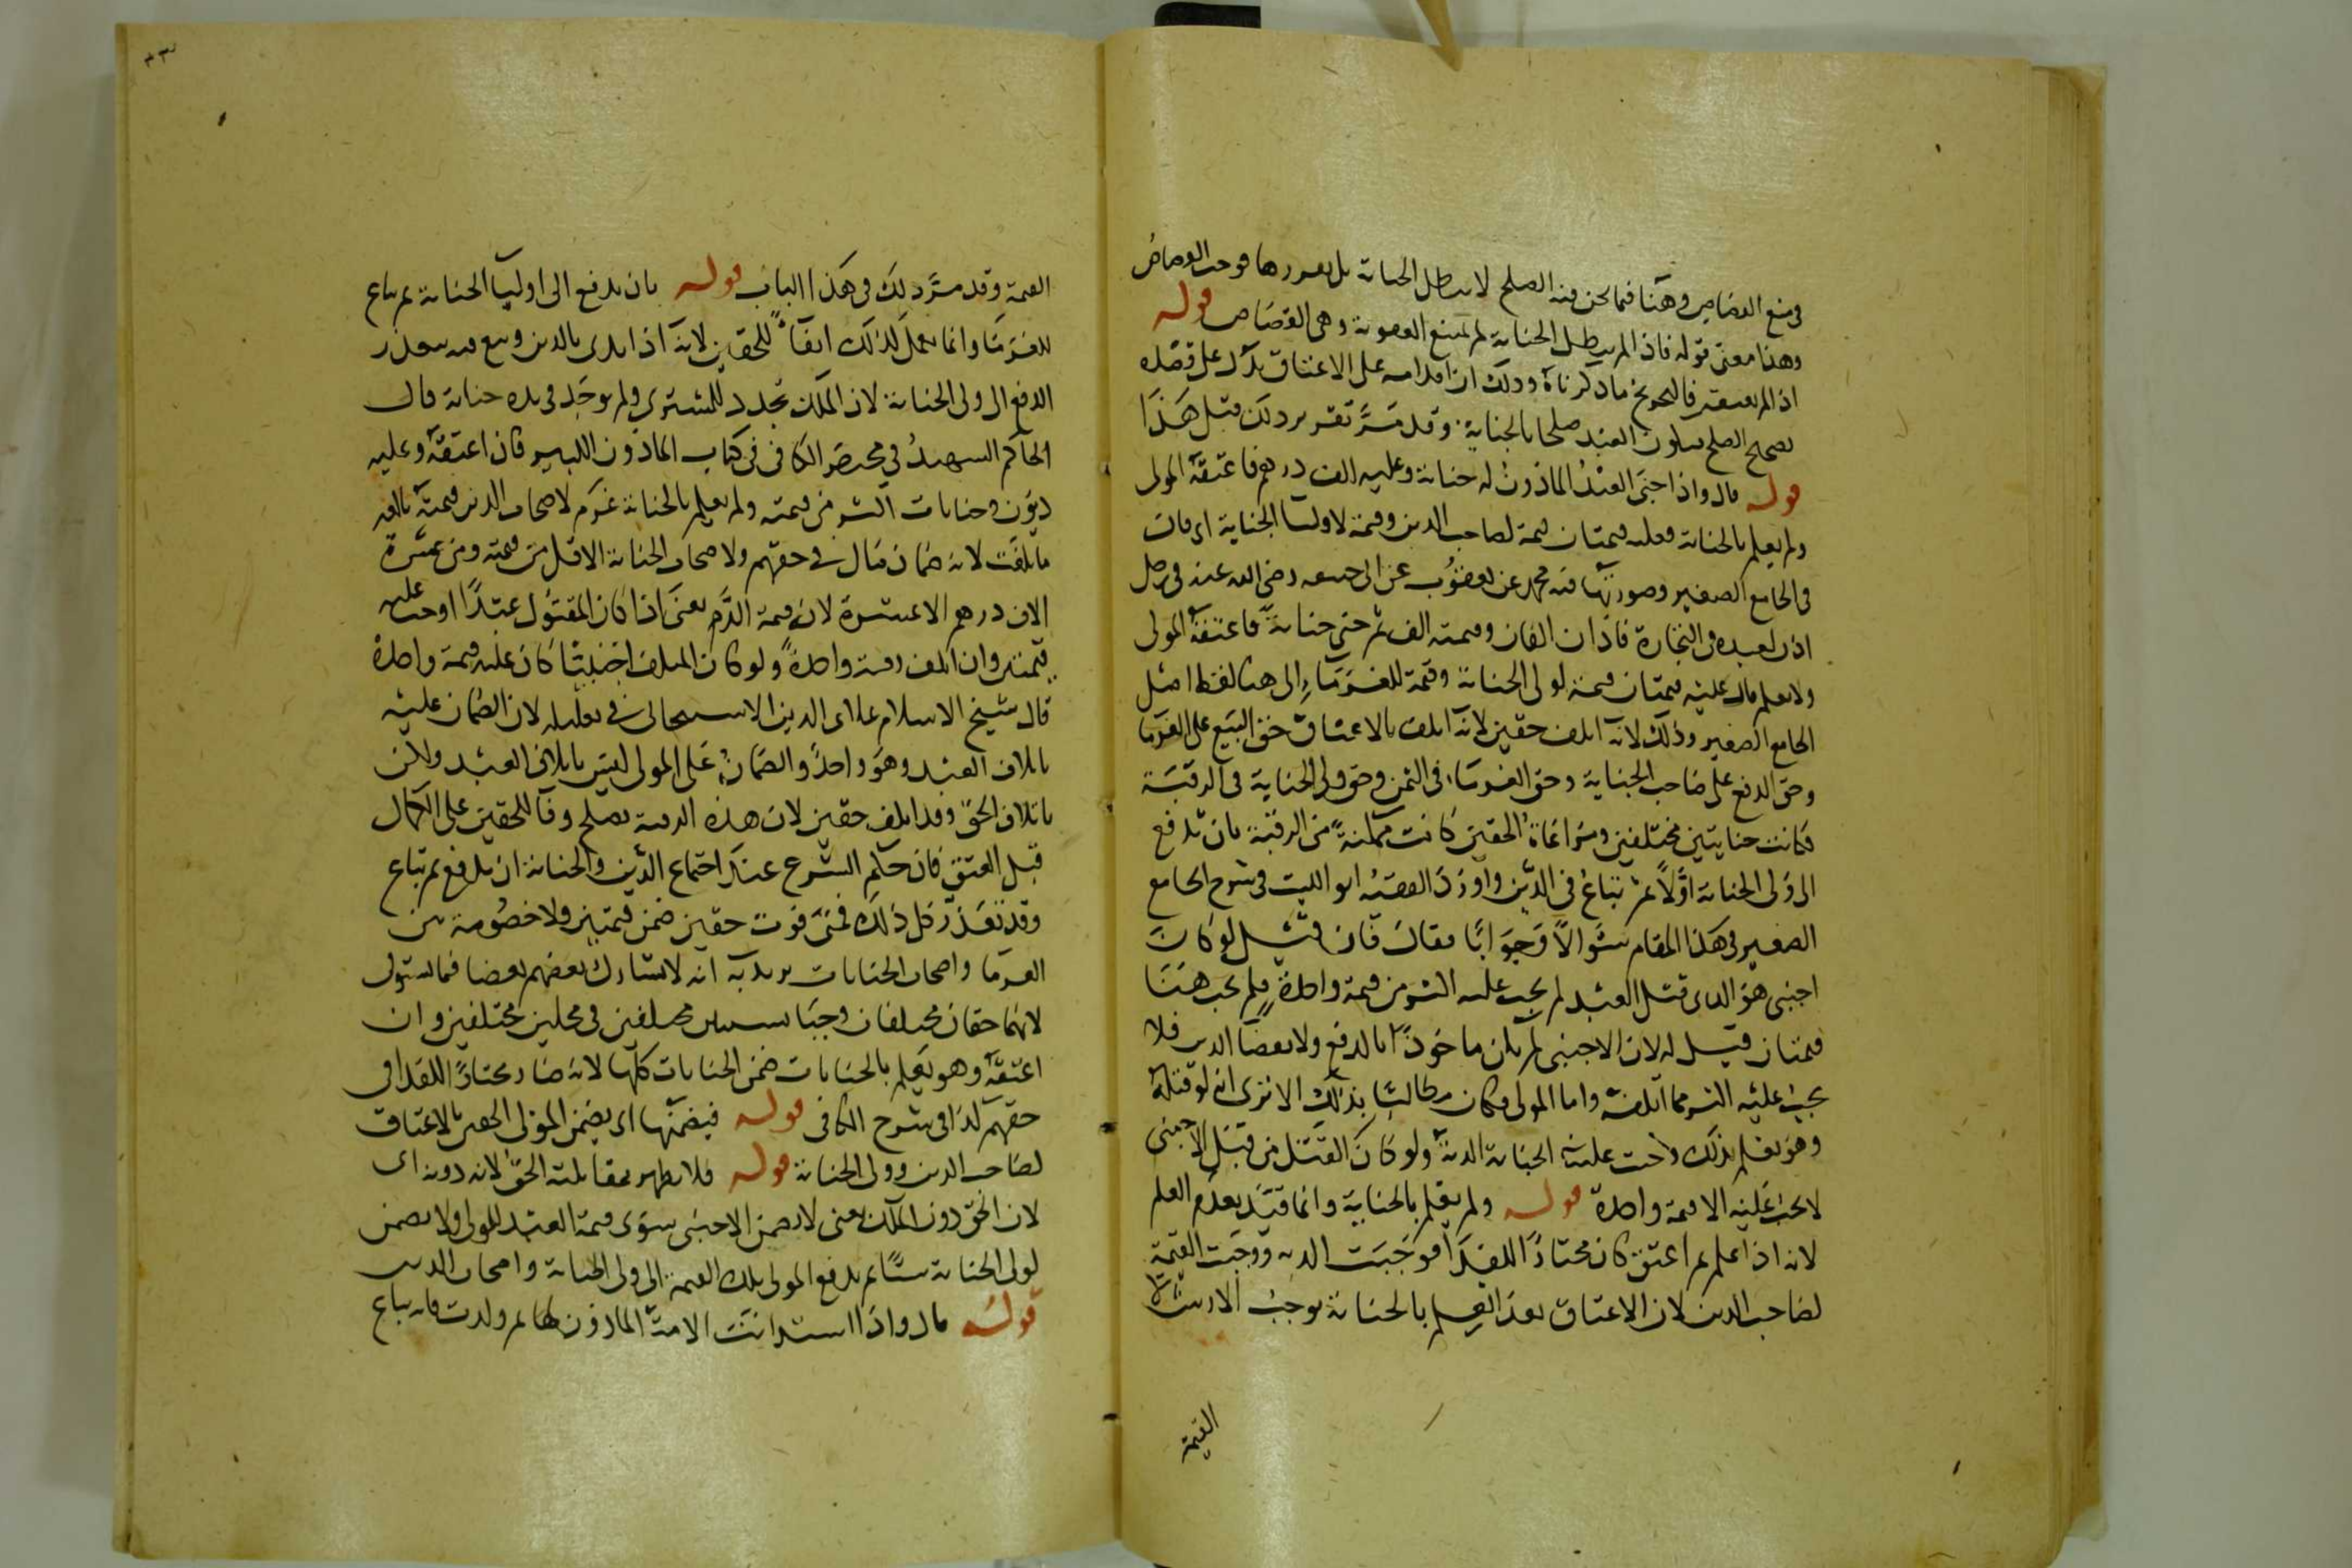 في منع القصاص وههنا فيما نحن فيه الصلح لا يبطل الجناية بل يقررها فوجب القصاص
وهذا معنى قوله فاذا لم يبطل الجناية لم تمتنع العقوبة وهي القصاص قوله
اذا لم يعتقه فالتخريج ما ذكرناه وذلك ان اقدامه على الاعتاق يدل على قصده
تصحيح الصلح فيكون العبد صلحا بالجناية وقد مر تقرير ذلك قبل هذا
قوله قال واذا جنى العبد الماذون له جناية وعليه الف درهم فاعتقه المولى
ولم يعلم بالجناية فعليه قيمتان قيمة لصاحب الدين وقيمة لاوليا الجناية اي قال
في الجامع الصغير وصورتها فيه محمد عن يعقوب عن ابي حنيفه رضي الله عنه في رجل
اذن لعبده في التجارة فادان الفان وقيمته الف ثم جنى جناية فاعتقه المولى
ولا يعلم قال عليه قيمتان قيمة لولي الجناية وقيمة للغرماء الى هنا لفظ اصل
الجامع الصغير وذلك لانه اتلف حقين لانه اتلف بالاعتاق حق البيع على الغرما
وحق الدفع على صاحب الجناية وحق الغرماء في الثمن وحق ولي الجناية في الرقبة
فكانت جنايتين مختلفتين ومراعاة الحقين كانت ممكنة من الرقبة بان تدفع
الى ولي الجناية اولا ثم تباع في الدين واورد الفقيه ابو الليث في شرح الجامع
الصغير في هذا المقام سؤالا وجوابا فقال فان قيل لو كان
اجنبي هو الذي قتل العبد لم يجب عليه اكثر من قيمة واحدة فلم يجب هنا
قيمتان قيل له لان الاجنبي لم يكن ماخوذا بالدفع ولا بقضا الدين فلا
يجب عليه اكثر مما اتلفه واما المولى فكان مطالبا بذلك الا ترى انه لو قتله
وهو يعلم بذلك وجبت عليه الجناية الدية ولو كان القتل من قبل الاجنبي
لا يجب عليه الا قيمة واحدة قوله ولم يعلم بالجناية وانما قيد بعدم العلم
لانه اذا علم ثم اعتق كان مختارا للفدا فوجبت الدية ووجبت القيمة
لصاحب الدين لان الاعتاق بعد العلم بالجناية يوجب الارش لا
القيمة
القيمة وقد مر ذلك في هذا الباب قوله بان يدفع الى اوليا الجناية ثم يباع
للغرما وانما يعمل كذلك ايفاء للحقين لانه اذا ابدى بالدين وبيع فيه يتعذر
الدفع الى ولي الجناية لان الملك تجدد للمشتري ولم يوجد في يده جناية قال
الحاكم الشهيد في مختصر الكافي في كتاب الماذون الكبير فان اعتقه وعليه
ديون وجنايات اكثر من قيمته ولم يعلم بالجناية غرم لاصحاب الدين قيمته بالغة
ما بلغت لانه ضمان مال في حقهم ولاصحاب الجناية الاقل من قيمته ومن عشرة
الاف درهم الا عشرة لانه قيمة الدم يعني اذا كان المقتول عبدا اوجب عليه
قيمتين وان اتلف رقبة واحدة ولو كان المتلف اجنبيا كان عليه قيمة واحدة
قال شيخ الاسلام علاى الدين الاسبيجابي في تعليله لان الضمان عليه
باتلاف العبد وهو واحد والضمان على المولى ليس باتلاف العبد ولكن
باتلاف الحق وقد اتلف حقين لان هذه الرقبة تصلح وفا للحقين على الكمال
قبل العتق فان حكم الشرع عند اجتماع الدين والجناية ان يدفع ثم تباع
وقد تعذر كل ذلك فمتى فوت حقين ضمن قيمتين ولا خصومة بين
الغرما واصحاب الجنايات يريد به انه لا يشارك بعضهم بعضا فيما يستوفي
لانهما حقان مختلفان وجبا بسببين مختلفين في محلين مختلفين وان
اعتقه وهو يعلم بالجنايات ضمن الجنايات كلها لانه صار مختارا للفدا في
حقهم كذا في شرح الكافي قوله فيضمنها اي يضمن المولى الحقين بالاعتاق
لصاحب الدين وولي الجناية قوله فلا يظهر بمقابلته الحق لانه دونه اي
لان الحق دون الملك يعني لا يضمن الاجنبي سوى قيمة العبد للمولى ولا يضمن
لولي الجناية شيا ثم يدفع المولى تلك القيمة الى ولي الجناية واصحاب الدين
قوله قال واذا استدانت الامة الماذون لها ثم ولدت فانه يباع